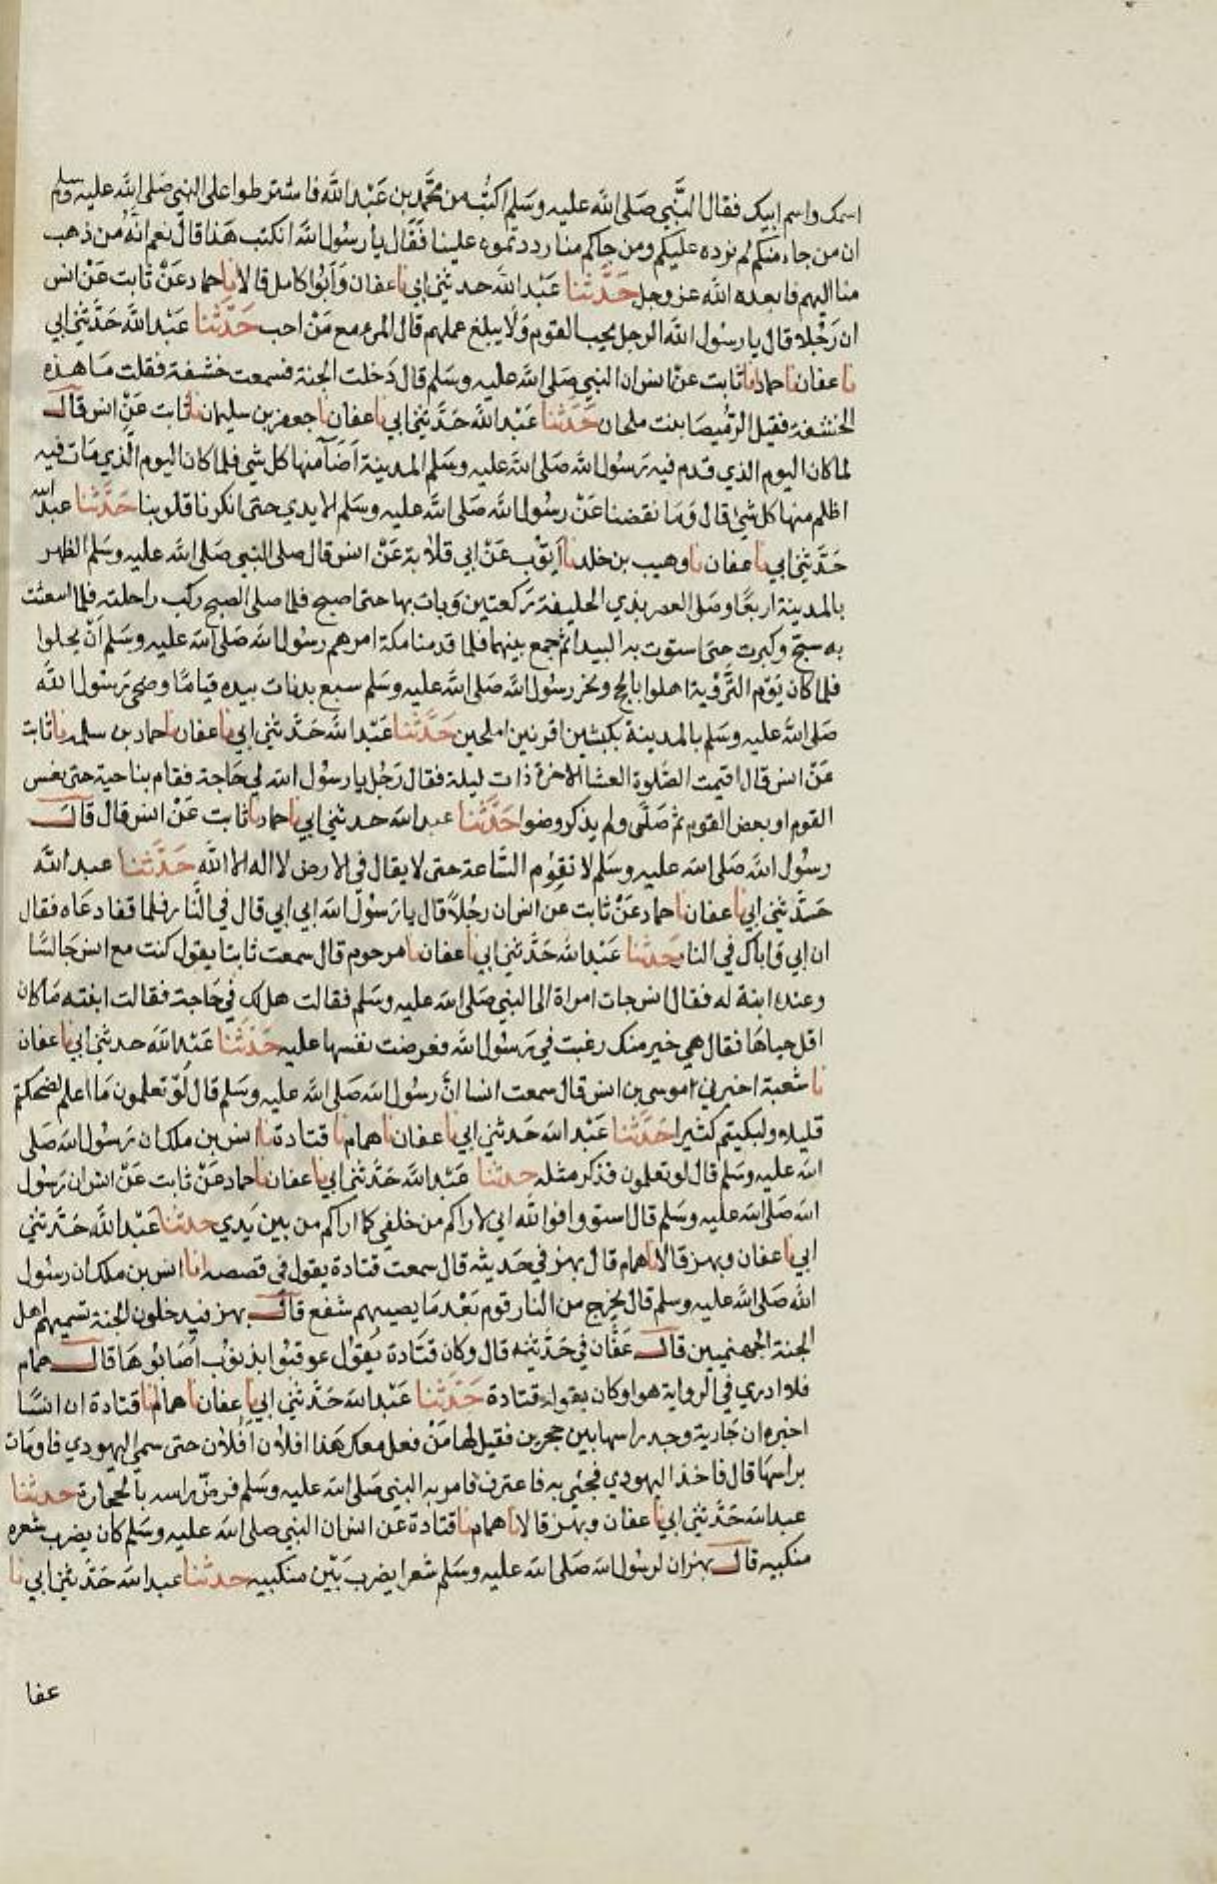 اسمك واسم ابيك فقال النَّبي صَلى الله عليه وسَلم اكتُب من محَّمد بن عَبْد الله فاشترطوا على النبي صَلى الله عليه وسلم
ان من جاء منكم لم نرده عليكم ومن جاكم منا رددتموه علينا فقال يا رسُول الله انكتب هَذا قالَ نعم انَّه من ذهب
منا اليهم فابعده الله عز وجل حَدَّثنا عَبْد الله حدثني ابي نا عفان وَأبُوا كامل قالا نا حماد عَنْ ثابت عَنْ انس
ان رَجْلا قال يا رسول الله الرجل يحب القوم وَلا يبلغ عملهم قال المرء مع مَنْ احب حَدَّثنا عَبْد الله حَدَّثني ابي
نا عفان نا حماد انا ثابت عن انس ان النبي صَلى الله عليه وسَلم قال دَخلت الجنة فسمعت خشفة فقلت مَا هذه
الخشفة فقيل الرُّميصَا بنت ملحان حَدَّثنا عَبْد الله حَدَّثني ابي نا عفان نا جعفر بن سليمان نا ثابت عَنْ انس قال
لما كان اليوم الذي قدم فيه رَسُول الله صَلى الله عليه وسَلم المدينة اَضَآ منها كل شي فلما كان اليوم الَّذي مَات فيه
اظلم منها كل شئ قال وَمَا نفضنا عَنْ رسُول الله صَلى الله عليه وسَلم الايدي حتى انكرنا قلوبنا حَدَّثنا عبد الله
حَدَّثني ابي نا عفان نا وهيب بن خلد نا أيُّوب عَنْ ابي قلابة عَنْ انس قال صلى النبي صَلى الله عليه وسَلم الظهر
بالمدينة اربعًا وصَلى العصر بذي الحليفة رَكعتين وَبات بها حتى اصبح فلما صلى الصبح ركب راحلته فلما انبعثت
به سبَّح وكبرت حتى استوت به البيدا ثم جمع بينهما فلما قدمنا مكة امرهم رسُول الله صَلى الله عليه وسَلم اَنْ يحلوا
فلما كان يَوْم التَّرْوية اهلوا بالحج ونحر رسول الله صَلى الله عليه وسَلم سبع بدنات بيده قيامًا وضحى رَسُول الله
صَلى الله عليه وسَلم بالمدينة بكبشين اقرنين املحين حَدَّثنا عَبْد الله حَدَّثني ابي نا عفان نا حماد بن سلمة نا ثابت
عَنْ انس قال اقيمت الصَّلوة العشا الاخرة ذات ليلة فقال رَجُل يا رسُول الله لي حَاجة فقام يناجيه حتى نعس
القوم او بعض القوم ثم صَلَّى ولم يذكر وضوا حَدَّثنا عبد الله حدثني ابي نا حماد نا ثابت عَنْ انس قال قال
رسُول الله صَلى الله عليه وسَلم لا تقوْم السَّاعة حتى لا يقال في الارض لا اله الا الله حَدَّثنا عبد الله
حَدَّثني ابي نا عفان نا حماد عَنْ ثابت عن انس ان رجُلاً قال يا رَسُولَ الله ابي ابي قال في النَّار فلما قفا دعَاه فقال
ان ابي وَاباك في النار حَدثنا عَبْد الله حَدَّثني ابي نا عفان نا مرحوم قال سمعت ثابتا يقول كنت مع انس جَالسًا
وعنده ابنة له فقال انس جات امراة الى النبي صَلى الله عليه وسَلم فقالت هل لك في حَاجة فقالت ابنته مَا كان
اقل حياهَا فقال هي خير منك رغبت في رَسُول الله فعرضت نفسها عليه حَدَّثنا عَبْد الله حدثني ابي نا عفان
نا شعبة اخبرني موسى بن انس قال سمعت انسا انَّ رسُول الله صَلى الله عليه وسَلم قال لَوْ تعلمون مَا اعلم لضحكتم
قليلا ولبكيتم كثيرا حَدَّثنا عَبْد الله حَدثني ابي نا عفان نا همام نا قتادة نا انس بن ملك ان رَسُول الله صَلى
الله عليه وسَلم قال لو تعلمون فذكر مثله حدثنا عَبْد الله حَدَّثني ابي نا عفان نا حماد عَنْ ثابت عَنْ انس ان رَسُول
الله صَلى الله عليه وسَلم قال استووا فوالله اني لاراكم من خلفي كما اراكم من بين يَدي حدثنا عَبْد الله حَدَّثني
ابي نا عفان وبهز قالا نا همام قال بهز في حَديثه قال سمعت قتادة يقول في قصصه انا انس بن ملك ان رسُول
الله صَلى الله عليه وسلم قال يخرج من النار قوم بَعْد مَا يصيبهم سَفع قال بهز فيدخلون الجنة تسميهم اهل
الجنة الجهنميين قال عَفَّان في حَدَّيثه قال وكان قتَادة يقُول عوقبُوا بذنوب اصَابوهَا قال همام
فلا ادري في الرواية هو او كان يقوله قتادة حَدَّثنا عَبْد الله حَدَّثني ابي نا عفان نا همام انا قتادة ان انسًا
اخبره ان جَارية وجد راسها بين حجرين فقيل لها مَنْ فعل معك هَذا افلان اَفُلان حتى سمى اليهودي فاومَات
براسهَا قال فاخذ اليهودي فجئي به فاعترف فامر به النبي صَلى الله عليه وسَلم فرض راسه بالحجارة حدثنا
عبد الله حَدَّثني ابي نا عفان وبهز قالا نا همام نا قتادة عن انس ان النبي صلى الله عليه وسَلم كان يضرب شعره
منكبيه قال بهز ان لرسُول الله صَلى الله عليه وسَلم شعرا يضرب بَيْن منكبيه حدثنا عبد الله حَدَّثني ابي نا
عفا